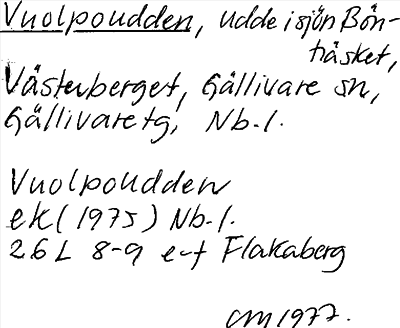 Vuolpoudden, udde i sjön Bön-
träsket,
Västerberget, Gällivare sn,
Gällivare tg, Nb. l.
Vuolpoudden
ek (1975) Nb. l.
26L 8-9 e-f Flakaberg
CM 1977.